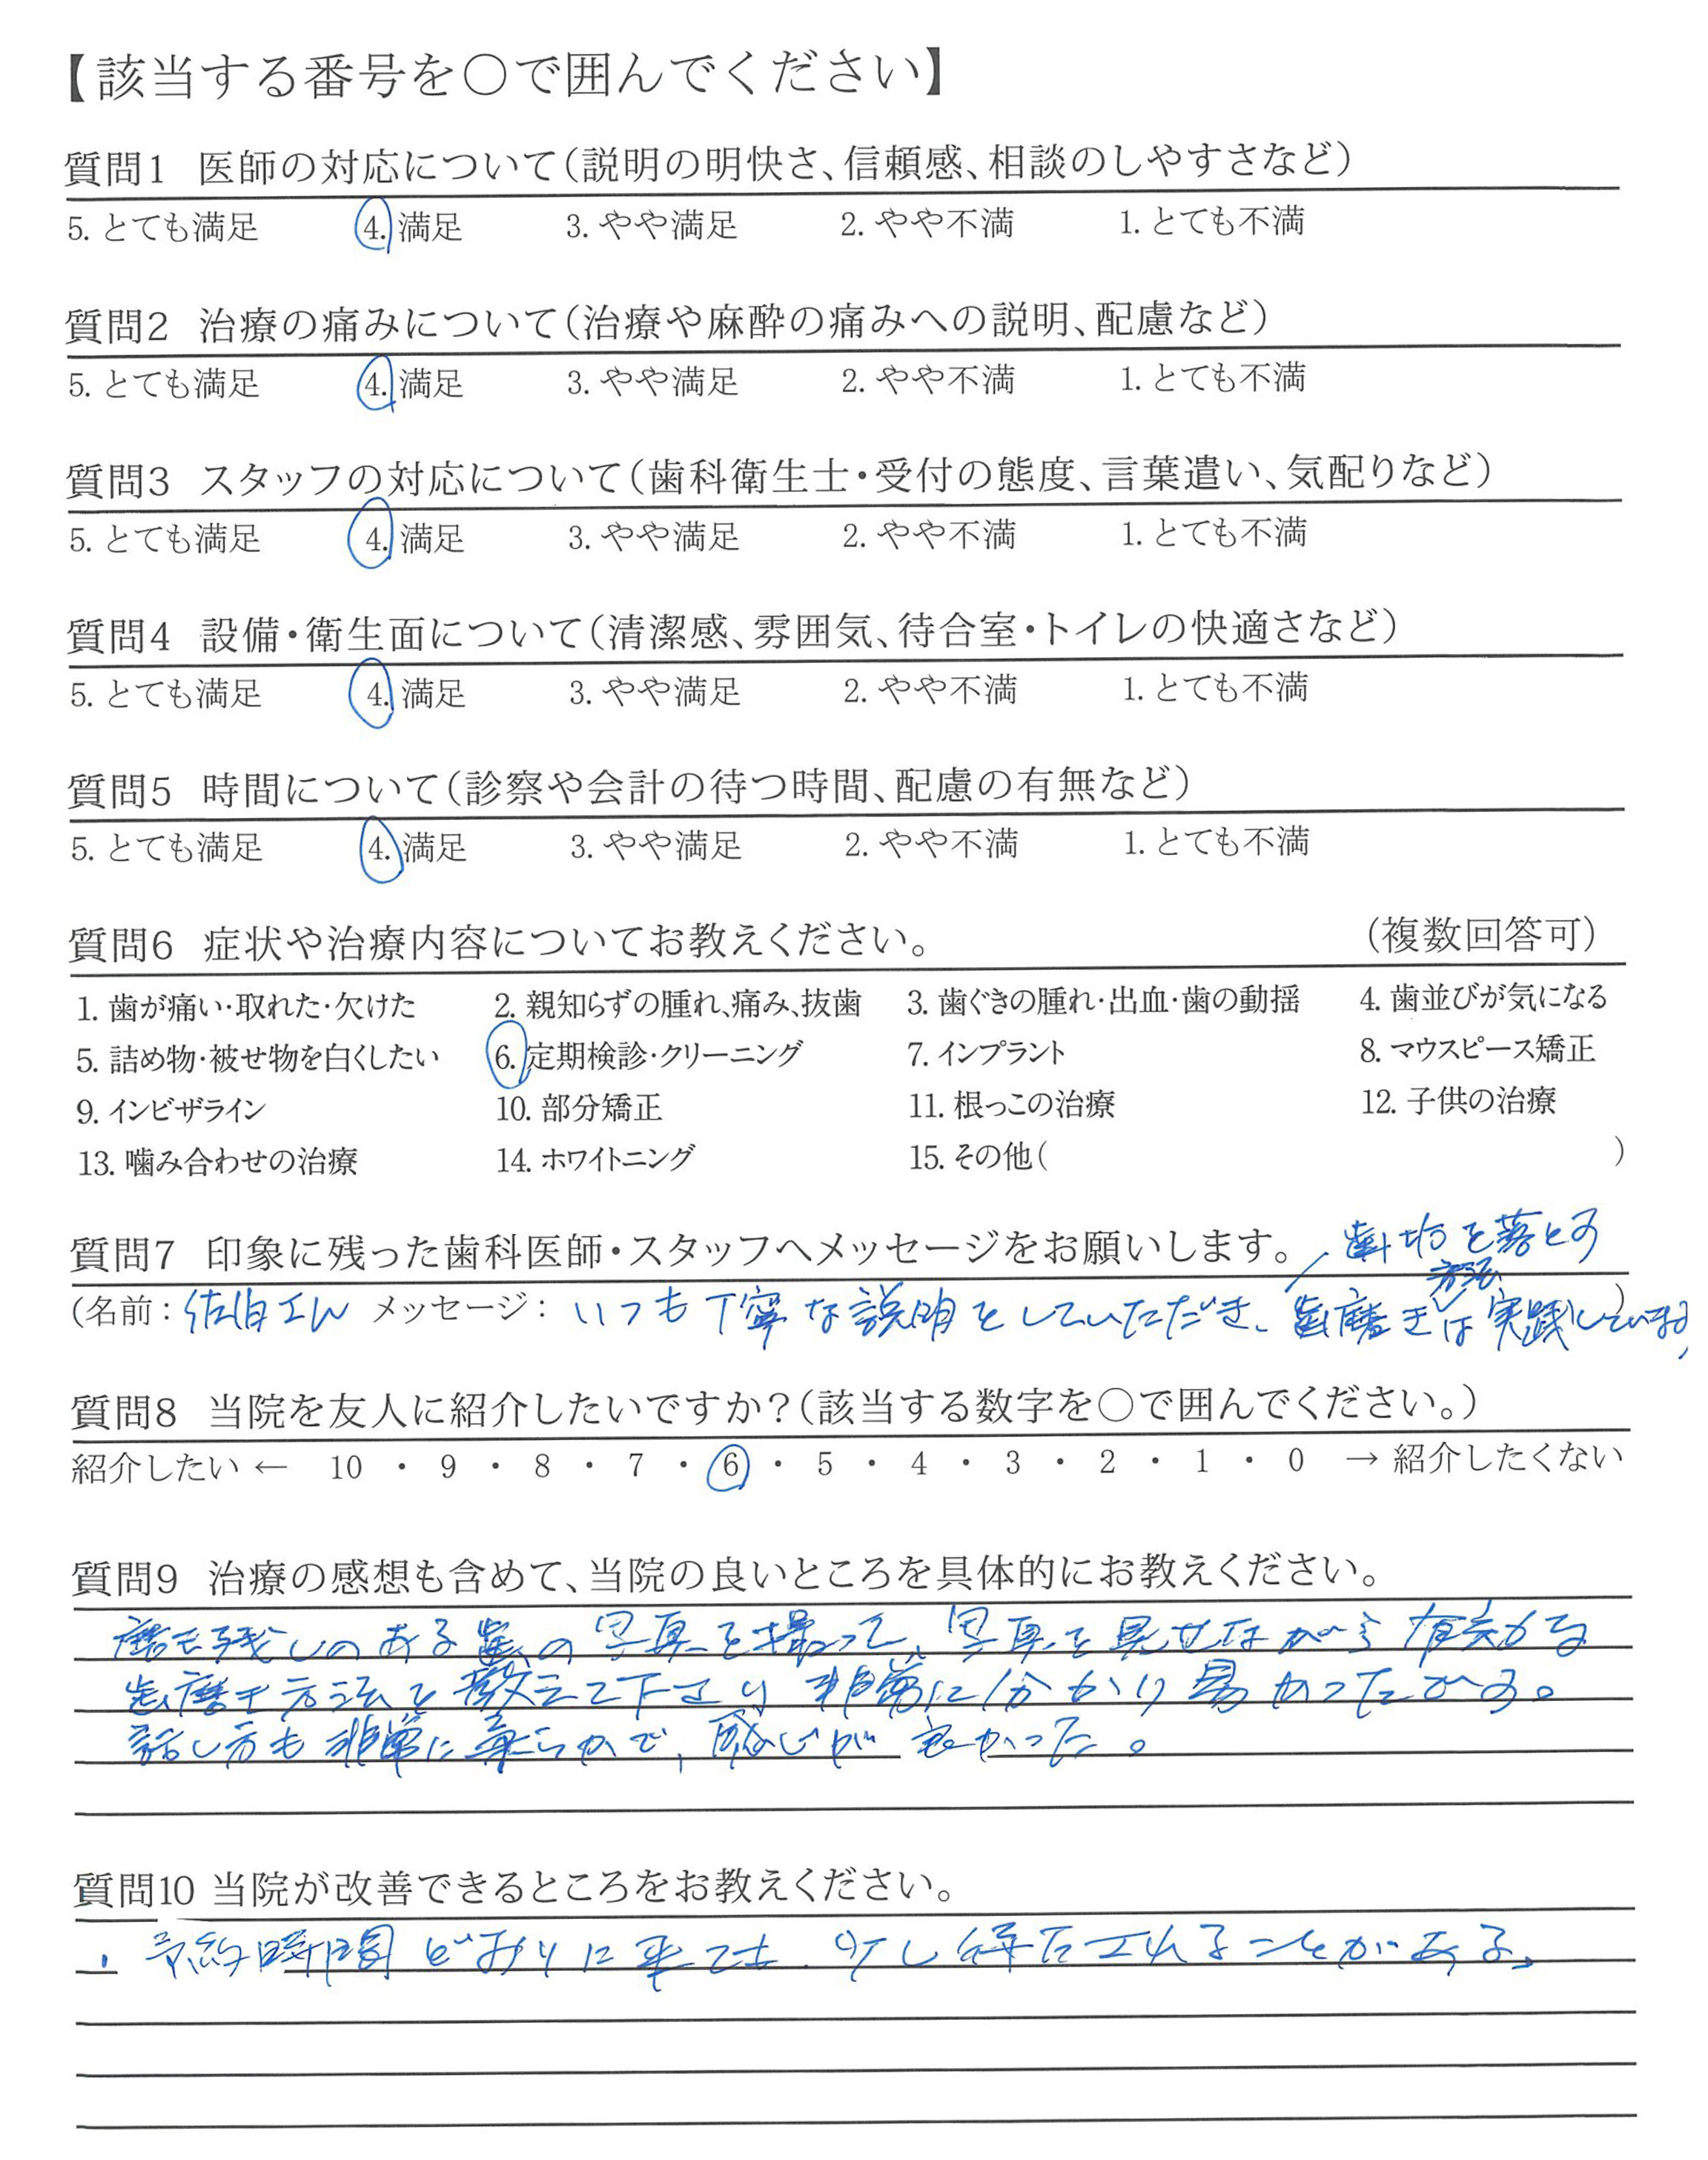 【該当する番号を○で囲んでください】
質問1 医師の対応について(説明の明快さ、信頼感、相談のしやすさなど)
5. とても満足 4. 満足 3. やや満足 2. やや不満 1. とても不満
質問2 治療の痛みについて(治療や麻酔の痛みへの説明、配慮など)
5. とても満足 4. 満足 3. やや満足 2. やや不満 1. とても不満
質問3 スタッフの対応について(歯科衛生士・受付の態度、言葉遣い、気配りなど)
5. とても満足 4. 満足 3. やや満足 2. やや不満 1. とても不満
質問4 設備・衛生面について(清潔感、雰囲気、待合室・トイレの快適さなど)
5. とても満足 4. 満足 3. やや満足 2. やや不満 1. とても不満
質問5 時間について(診察や会計の待つ時間、配慮の有無など)
5. とても満足 4. 満足 3. やや満足 2. やや不満 1. とても不満
質問6 症状や治療内容についてお教えください。 (複数回答可)
1. 歯が痛い・取れた・欠けた 2. 親知らずの腫れ、痛み、抜歯 3. 歯ぐきの腫れ・出血・歯の動揺 4. 歯並びが気になる
5. 詰め物・被せ物を白くしたい 6. 定期検診・クリーニング 7. インプラント 8. マウスピース矯正
9. インビザライン 10. 部分矯正 11. 根っこの治療 12. 子供の治療
13. 噛み合わせの治療 14. ホワイトニング 15. その他( )
質問7 印象に残った歯科医師・スタッフへメッセージをお願いします。
歯垢を落とす
方法
(名前：佐伯さん メッセージ：いつも丁寧な説明をしていただき、歯磨きは実践しています)
質問8 当院を友人に紹介したいですか？(該当する数字を○で囲んでください。)
紹介したい ← 10 ・ 9 ・ 8 ・ 7 ・ 6 ・ 5 ・ 4 ・ 3 ・ 2 ・ 1 ・ 0 → 紹介したくない
質問9 治療の感想も含めて、当院の良いところを具体的にお教えください。
磨き残しのある歯の写真を撮って、写真を見せながら有効な
歯磨き方法を教えて下さり非常に分かり易かったです。
話し方も非常に柔らかで、感じが良かった。
質問10 当院が改善できるところをお教えください。
・予約時間どおりに来ても、少し待たされることがある、